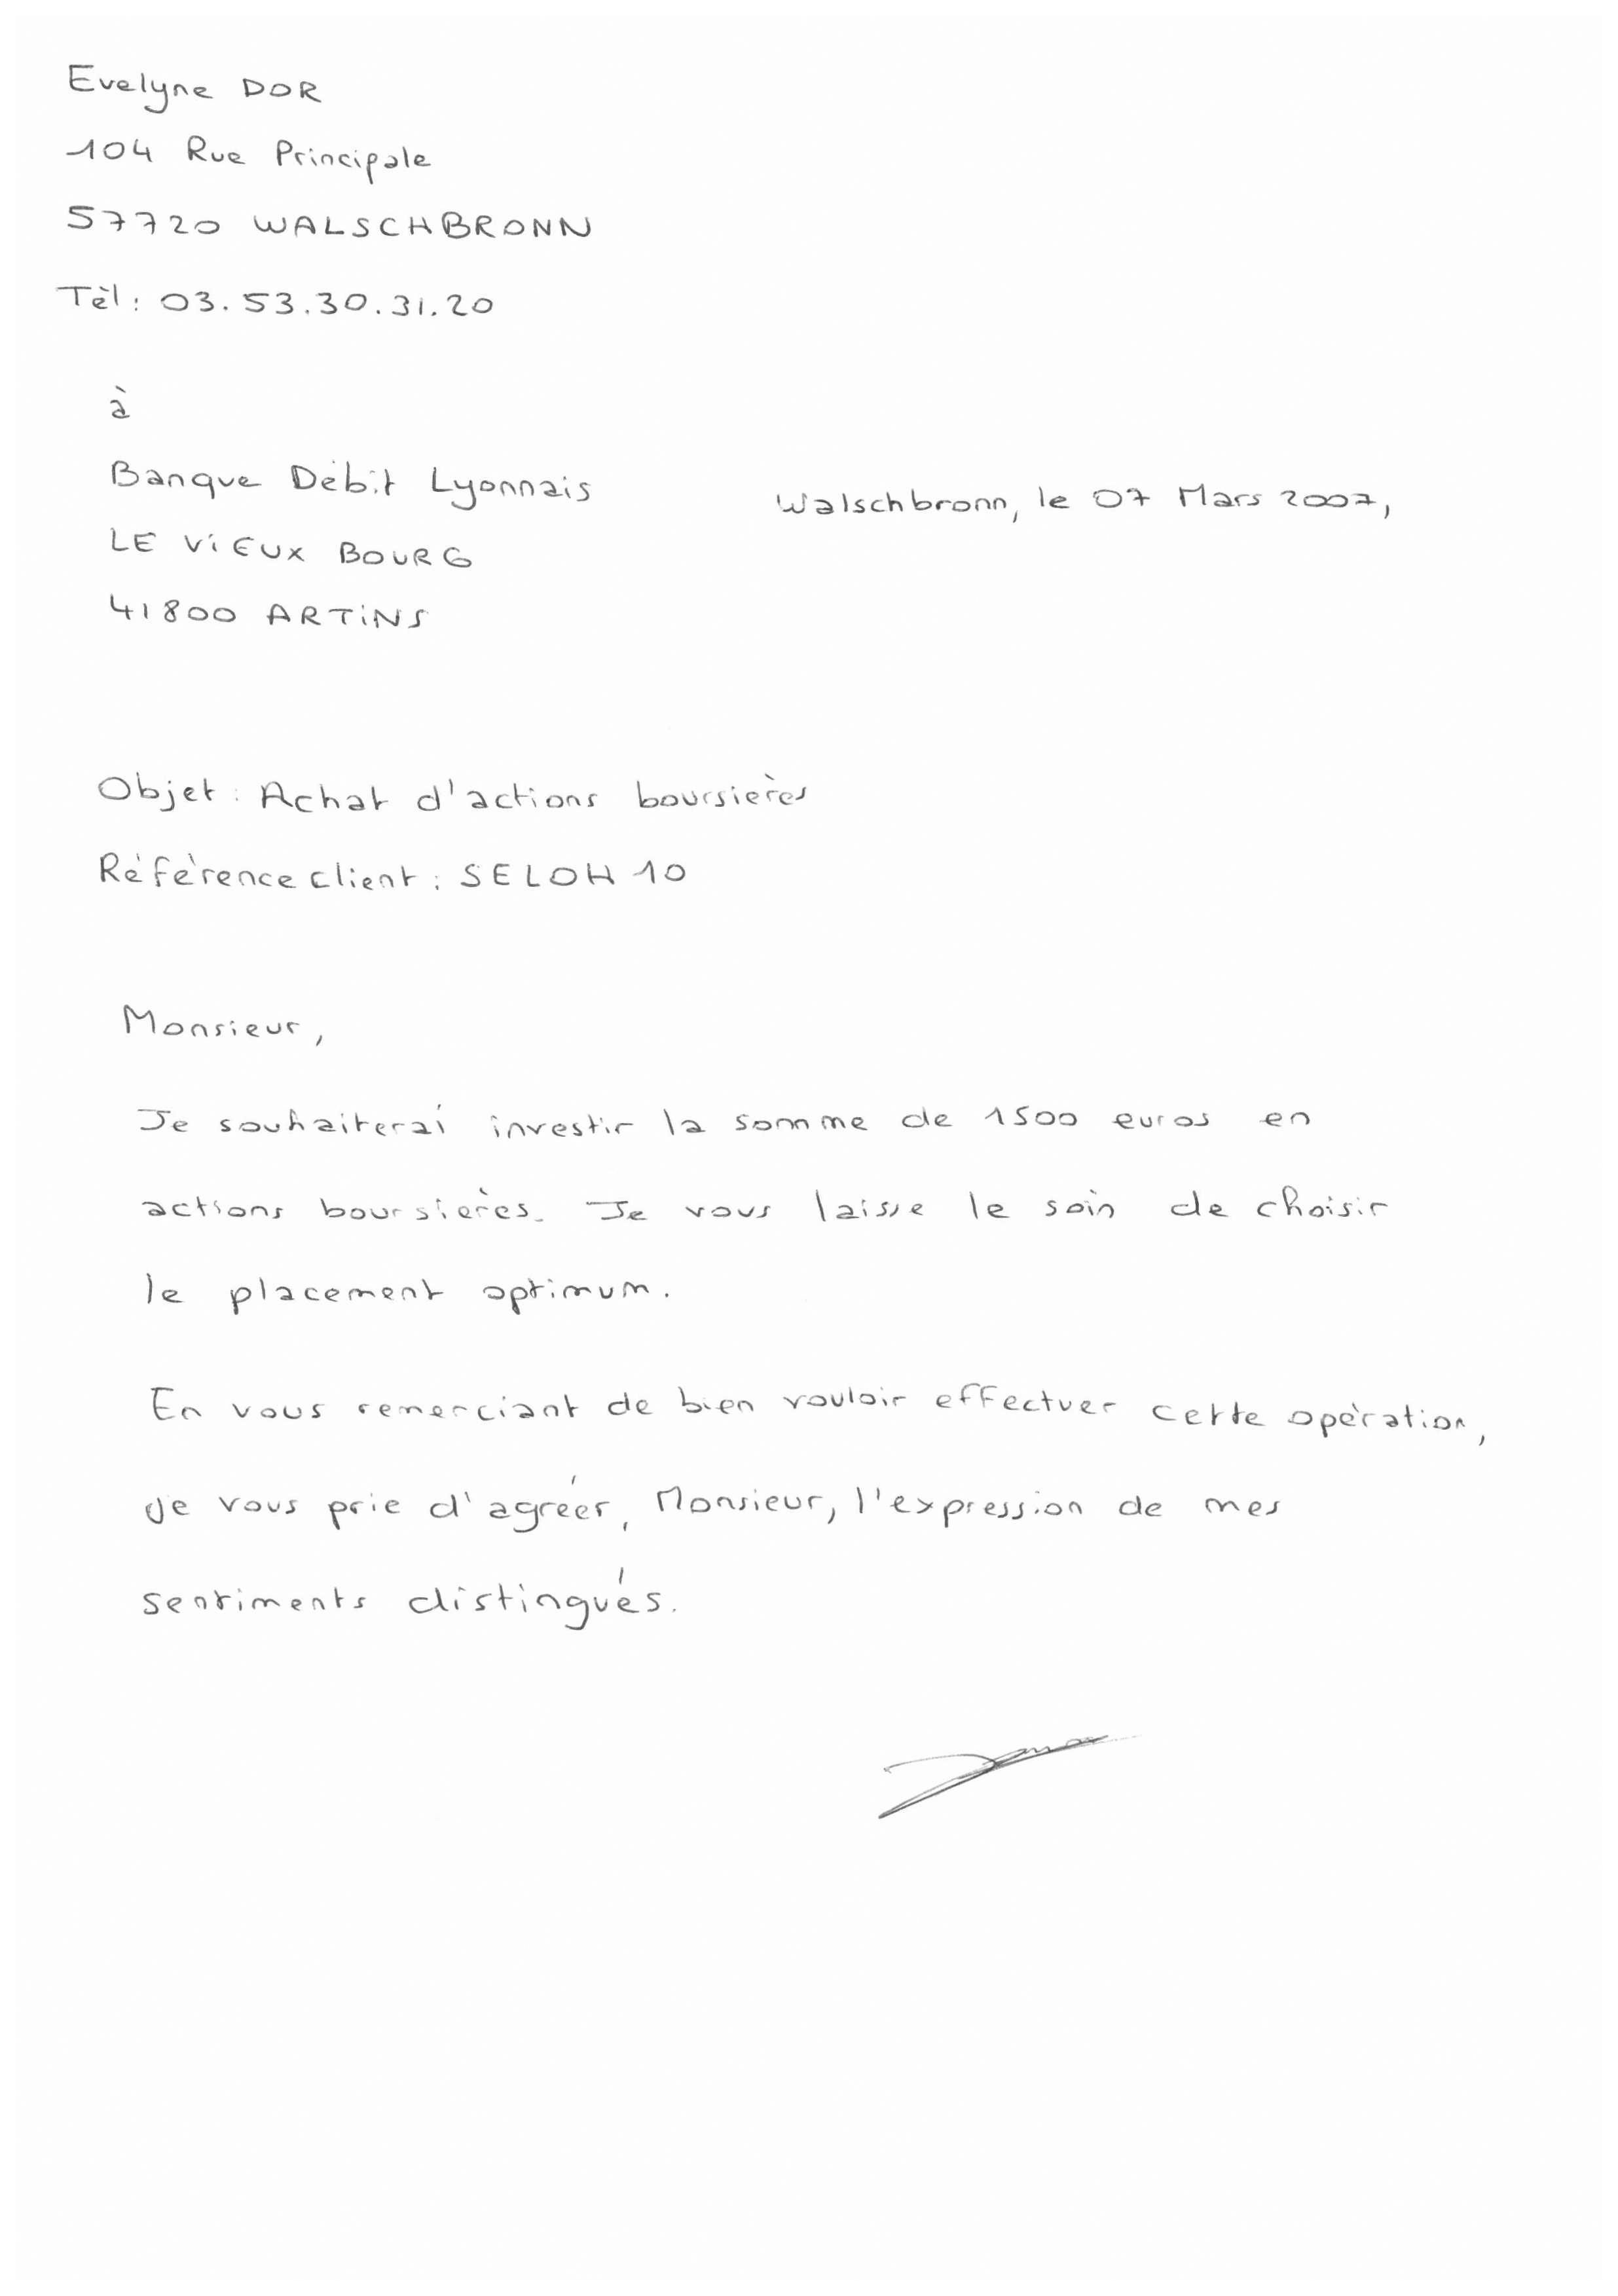 Evelyne DOR
104 Rue Principale
57720 WALSCHBRONN
Tél: 03.53.30.31.20
à
Banque Débit Lyonnais
Walschbronn, le 07 Mars 2007,
LE ViEUX BOURG
41800 ARTiNS
Objet: Achat d'actions boursières
Référence client: SELOH 10
Monsieur,
Je souhaiterai investir la somme de 1500 euros en
actions boursières. Je vous laisse le soin de choisir
le placement optimum.
En vous remerciant de bien vouloir effectuer cette opération,
je vous prie d'agréer, Monsieur, l'expression de mes
sentiments distingués.